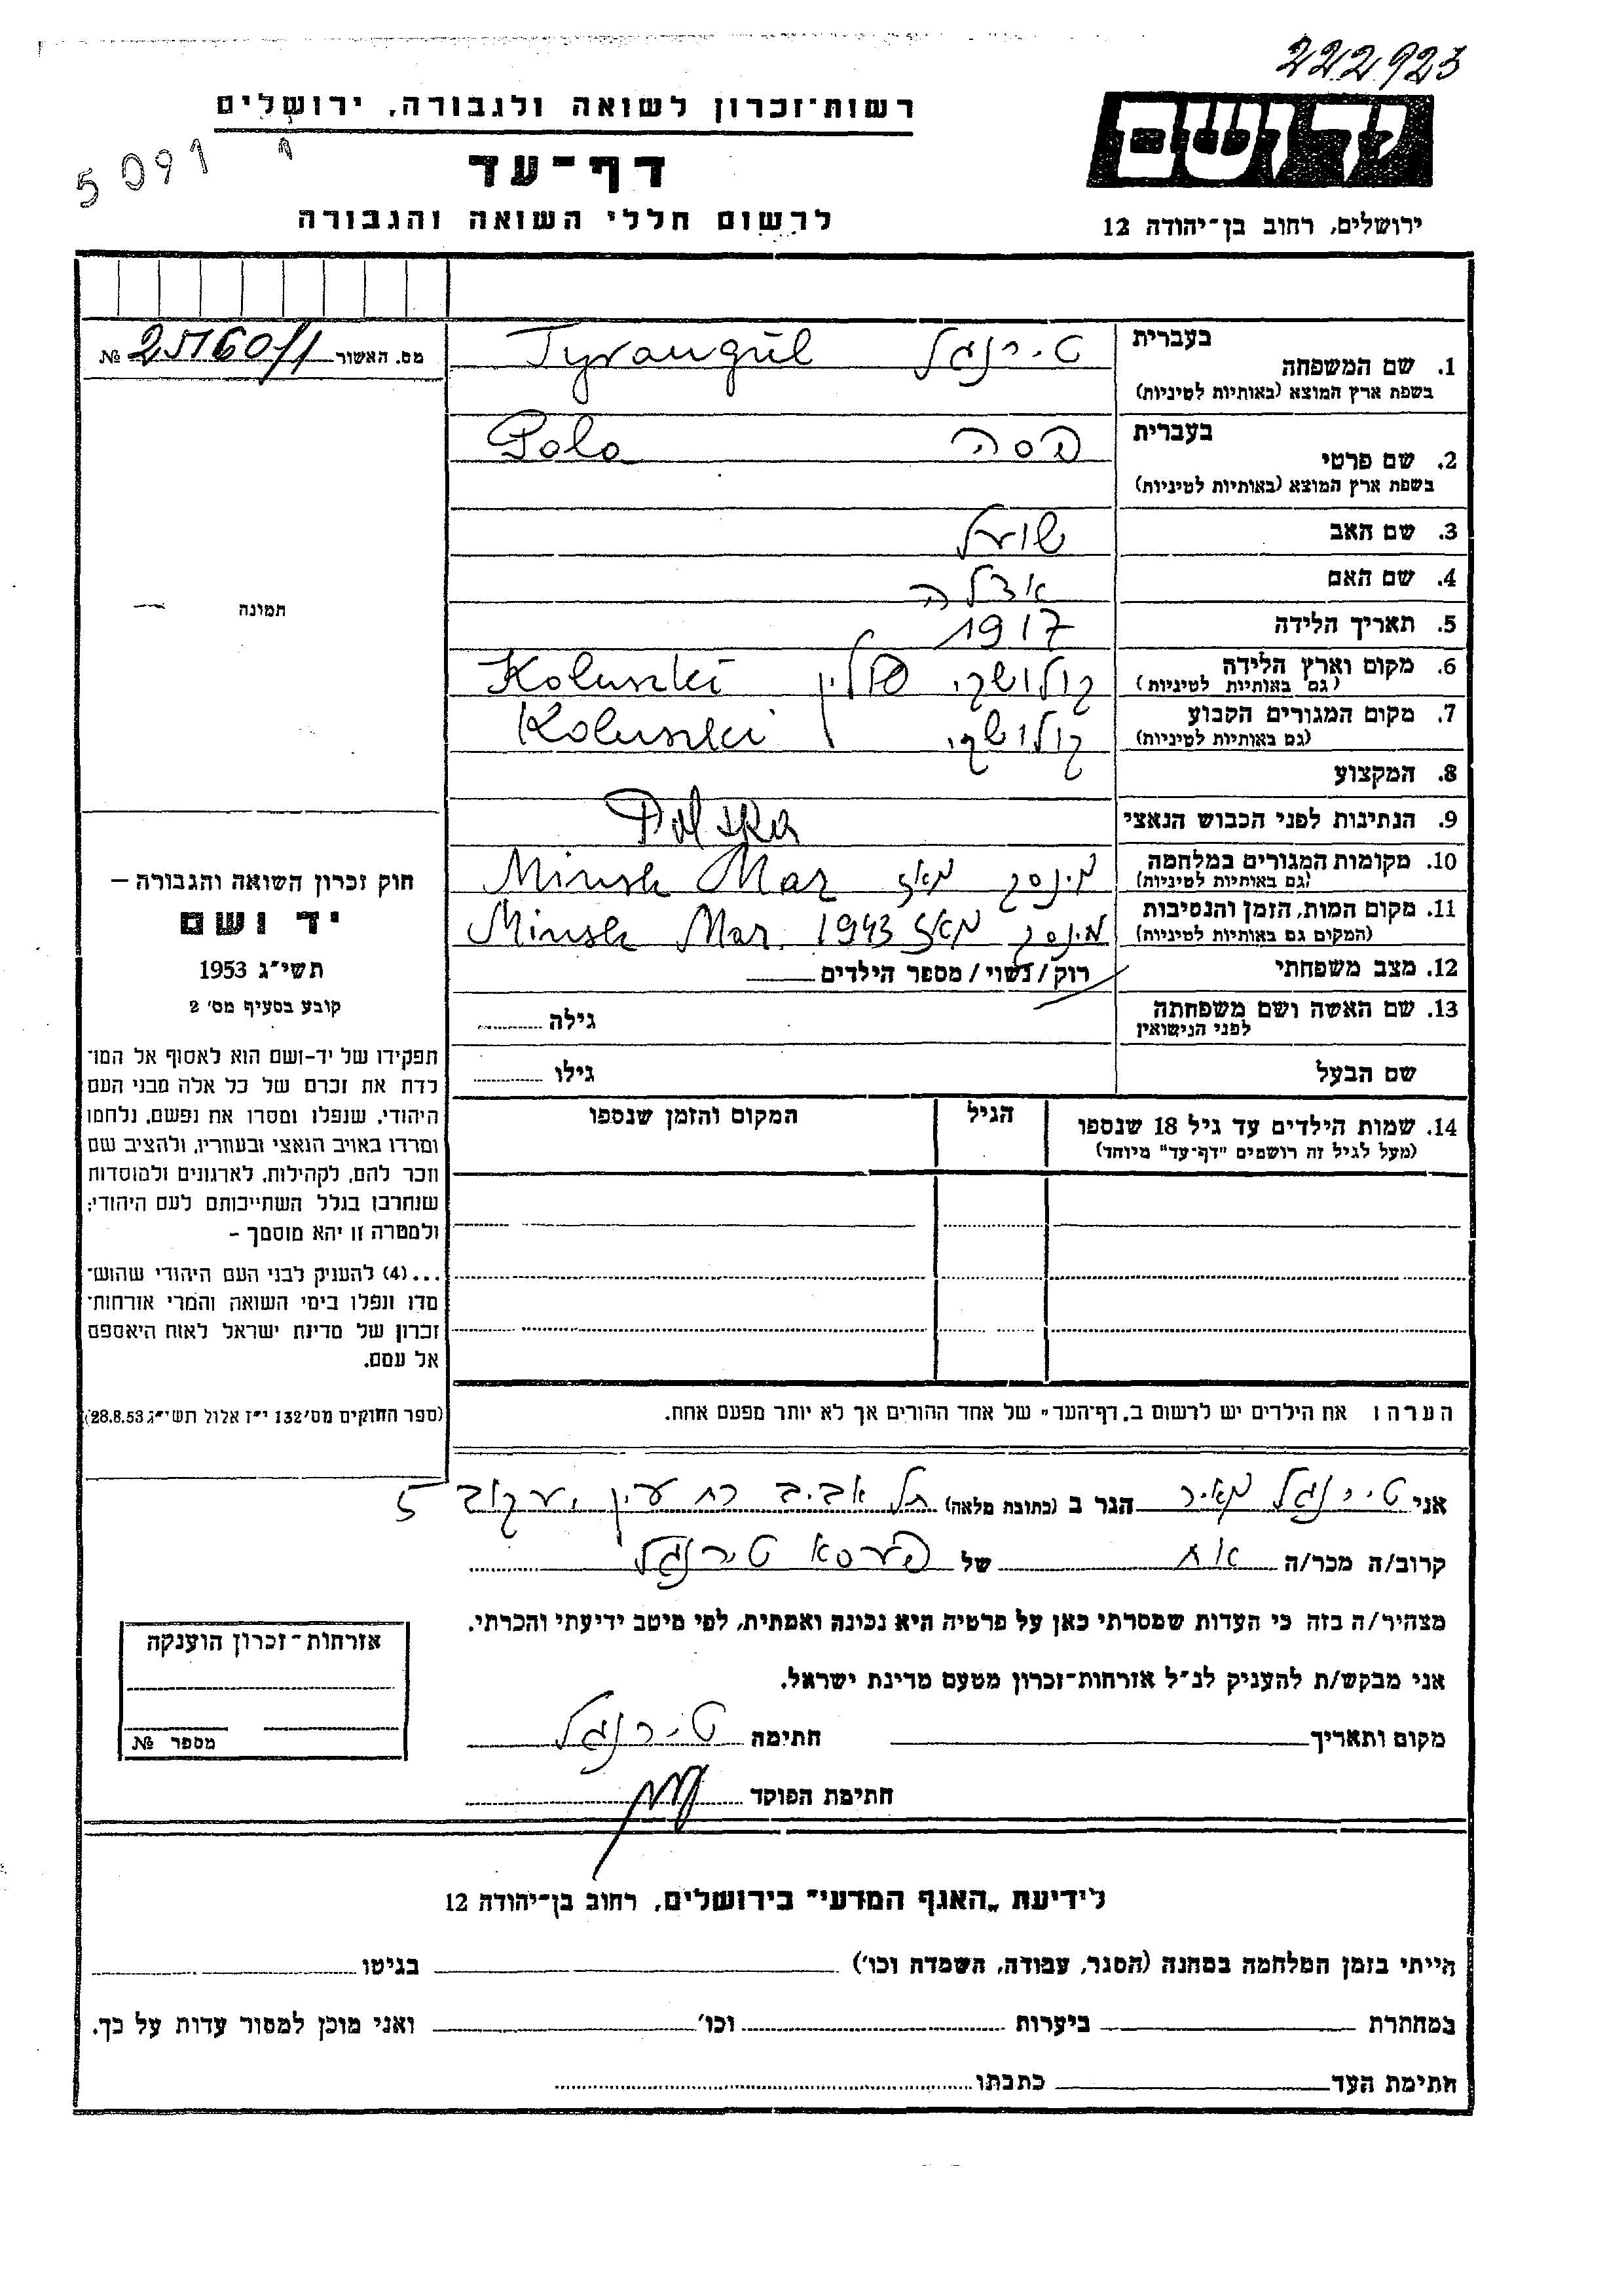 222923
רשות-זכרון לשואה ולגבורה, ירושלים
5091
דף-עד
לרשום חללי השואה והגבורה
ידושם
ירושלים, רחוב בן-יהודה 12
מס. האשור №
1. שם המשפחה בעברית טירנגל Tyrangiel
בשפת ארץ המוצא (באותיות לטיניות)
2. שם פרטי בעברית פסה Pola
בשפת ארץ המוצא (באותיות לטיניות)
3. שם האב
4. שם האם
5. תאריך הלידה 1917
6. מקום וארץ הלידה קולושקי פולין Koluszki
(גם באותיות לטיניות)
7. מקום המגורים הקבוע קולושקי Koluszki
(גם באותיות לטיניות)
8. המקצוע
9. הנתינות לפני הכבוש הנאצי Polska
10. מקומות המגורים במלחמה מינסק מאז Minsk Maz
(גם באותיות לטיניות)
11. מקום המות, הזמן והנסיבות מינסק מאז 1943 Minsk Maz.
(המקום גם באותיות לטיניות)
12. מצב משפחתי רוק/נשוי/מספר הילדים
13. שם האשה ושם משפחתה גילה
לפני הנישואין
שם הבעל גילו
14. שמות הילדים עד גיל 18 שנספו הגיל המקום והזמן שנספו
(מעל לגיל זה רושמים "דף-עד" מיוחד)
הערה: את הילדים יש לרשום ב"דף-העד" של אחד ההורים אך לא יותר מפעם אחת.
תמונה
חוק זכרון השואה והגבורה –
יד ושם
תשי"ג 1953
קובע בסעיף מס' 2
תפקידו של יד-ושם הוא לאסוף אל המו־
לדת את זכרם של כל אלה מבני העם
היהודי, שנפלו ומסרו את נפשם, נלחמו
ומרדו באויב הנאצי ובעוזריו, ולהציב שם
וזכר להם, לקהילות, לארגונים ולמוסדות
שנחרבו בגלל השתייכותם לעם היהודי;
ולמטרה זו יהא מוסמך –
...(4) להעניק לבני העם היהודי שהוש־
מדו ונפלו בימי השואה והמרי אזרחות־
זכרון של מדינת ישראל לאות היאספם
אל עמם.
(ספר החוקים מס' 132 י"ז אלול תשי"ג 28.8.53)
אני טירנגל מאיר הגר ב (כתובת מלאה) תל אביב רח עין יעקב 5
קרוב/ה מכר/ה אח של פעסא טירנגל
מצהיר/ה בזה כי העדות שמסרתי כאן על פרטיה היא נכונה ואמתית, לפי מיטב ידיעתי והכרתי.
אני מבקש/ת להעניק לנ"ל אזרחות-זכרון מטעם מדינת ישראל.
מקום ותאריך חתימה טירנגל
חתימת הפוקד
אזרחות-זכרון הוענקה
מספר №
לידיעת "האגף המדעי" בירושלים, רחוב בן-יהודה 12
הייתי בזמן המלחמה במחנה (הסגר, עבודה, השמדה וכו') בגיטו
במחתרת ביערות וכו' ואני מוכן למסור עדות על כך.
חתימת העד כתבתו